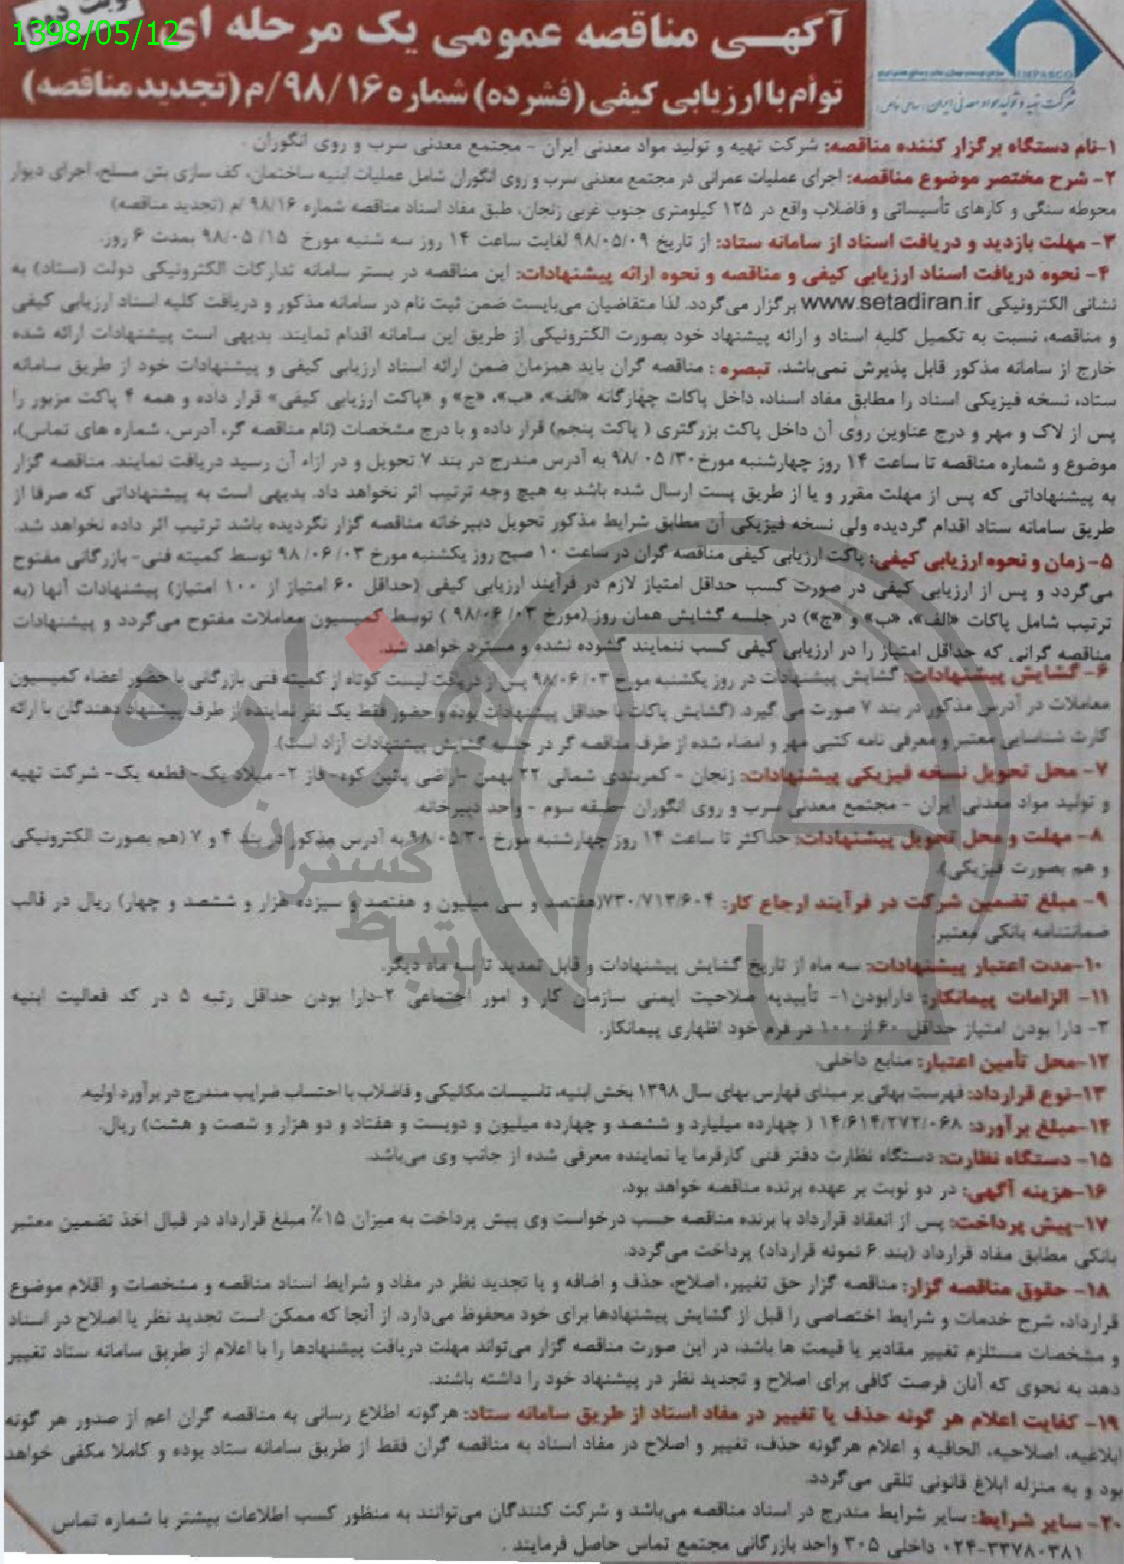 1398/05/12
نوبت دوم
آگهی مناقصه عمومی یک مرحله ای
توأم با ارزیابی کیفی (فشرده) شماره ۹۸/۱۶/م (تجدید مناقصه)
IMPASCO
شرکت تهیه و تولید مواد معدنی ایران
۱-نام دستگاه برگزار کننده مناقصه: شرکت تهیه و تولید مواد معدنی ایران - مجتمع معدنی سرب و روی انگوران .
۲- شرح مختصر موضوع مناقصه: اجرای عملیات عمرانی در مجتمع معدنی سرب و روی انگوران شامل عملیات ابنیه ساختمان، کف سازی بتن مسلح، اجرای دیوار
محوطه سنگی و کارهای تأسیساتی و فاضلاب واقع در ۱۲۵ کیلومتری جنوب غربی زنجان، طبق مفاد اسناد مناقصه شماره ۹۸/۱۶ /م (تجدید مناقصه)
۳- مهلت بازدید و دریافت اسناد از سامانه ستاد: از تاریخ ۹۸/۰۵/۰۹ لغایت ساعت ۱۴ روز سه شنبه مورخ ۹۸/۰۵/۱۵ بمدت ۶ روز.
۴- نحوه دریافت اسناد ارزیابی کیفی و مناقصه و نحوه ارائه پیشنهادات: این مناقصه در بستر سامانه تدارکات الکترونیکی دولت (ستاد) به
نشانی الکترونیکی www.setadiran.ir برگزار می‌گردد. لذا متقاضیان می‌بایست ضمن ثبت نام در سامانه مذکور و دریافت کلیه اسناد ارزیابی کیفی
و مناقصه، نسبت به تکمیل کلیه اسناد و ارائه پیشنهاد خود بصورت الکترونیکی از طریق این سامانه اقدام نمایند. بدیهی است پیشنهادات ارائه شده
خارج از سامانه مذکور قابل پذیرش نمی‌باشد. تبصره : مناقصه گران باید همزمان ضمن ارائه اسناد ارزیابی کیفی و پیشنهادات خود از طریق سامانه
ستاد، نسخه فیزیکی اسناد را مطابق مفاد اسناد، داخل پاکات چهارگانه «الف»، «ب»، «ج» و «پاکت ارزیابی کیفی» قرار داده و همه ۴ پاکت مزبور را
پس از لاک و مهر و درج عناوین روی آن داخل پاکت بزرگتری ( پاکت پنجم) قرار داده و با درج مشخصات (نام مناقصه گر، آدرس، شماره های تماس)،
موضوع و شماره مناقصه تا ساعت ۱۴ روز چهارشنبه مورخ ۹۸/۰۵/۳۰ به آدرس مندرج در بند ۷ تحویل و در ازاء آن رسید دریافت نمایند. مناقصه گزار
به پیشنهاداتی که پس از مهلت مقرر و یا از طریق پست ارسال شده باشد به هیچ وجه ترتیب اثر نخواهد داد. بدیهی است به پیشنهاداتی که صرفا از
طریق سامانه ستاد اقدام گردیده ولی نسخه فیزیکی آن مطابق شرایط مذکور تحویل دبیرخانه مناقصه گزار نگردیده باشد ترتیب اثر داده نخواهد شد.
۵- زمان و نحوه ارزیابی کیفی: پاکت ارزیابی کیفی مناقصه گران در ساعت ۱۰ صبح روز یکشنبه مورخ ۹۸/۰۶/۰۳ توسط کمیته فنی- بازرگانی مفتوح
می‌گردد و پس از ارزیابی کیفی در صورت کسب حداقل امتیاز لازم در فرآیند ارزیابی کیفی (حداقل ۶۰ امتیاز از ۱۰۰ امتیاز) پیشنهادات آنها (به
ترتیب شامل پاکات «الف»، «ب» و «ج») در جلسه گشایش همان روز (مورخ ۹۸/۰۶/۰۳ ) توسط کمیسیون معاملات مفتوح می‌گردد و پیشنهادات
مناقصه گرانی که حداقل امتیاز را در ارزیابی کیفی کسب ننمایند گشوده نشده و مسترد خواهد شد.
۶- گشایش پیشنهادات: گشایش پیشنهادات در روز یکشنبه مورخ ۹۸/۰۶/۰۳ پس از دریافت لیست کوتاه از کمیته فنی بازرگانی با حضور اعضاء کمیسیون
معاملات در آدرس مذکور در بند ۷ صورت می گیرد. (گشایش پاکات با حداقل پیشنهادات بوده و حضور فقط یک نفر نماینده از طرف پیشنهاد دهندگان با ارائه
کارت شناسایی معتبر و معرفی نامه کتبی مهر و امضاء شده از طرف مناقصه گر در جلسه گشایش پیشنهادات آزاد است).
۷- محل تحویل نسخه فیزیکی پیشنهادات: زنجان - کمربندی شمالی ۲۲ بهمن -اراضی پائین کوه- فاز ۲- میلاد یک- قطعه یک- شرکت تهیه
و تولید مواد معدنی ایران - مجتمع معدنی سرب و روی انگوران -طبقه سوم - واحد دبیرخانه.
۸- مهلت و محل تحویل پیشنهادات: حداکثر تا ساعت ۱۴ روز چهارشنبه مورخ ۹۸/۰۵/۳۰ به آدرس مذکور در بند ۴ و ۷ (هم بصورت الکترونیکی
و هم بصورت فیزیکی).
۹- مبلغ تضمین شرکت در فرآیند ارجاع کار: ۷۳۰/۷۱۳/۶۰۴(هفتصد و سی میلیون و هفتصد و سیزده هزار و ششصد و چهار) ریال در قالب
ضمانتنامه بانکی معتبر.
۱۰-مدت اعتبار پیشنهادات: سه ماه از تاریخ گشایش پیشنهادات و قابل تمدید تا سه ماه دیگر.
۱۱- الزامات پیمانکار: دارابودن۱- تأییدیه صلاحیت ایمنی سازمان کار و امور اجتماعی ۲-دارا بودن حداقل رتبه ۵ در کد فعالیت ابنیه
۳- دارا بودن امتیاز حداقل ۶۰ از ۱۰۰ در فرم خود اظهاری پیمانکار.
۱۲-محل تأمین اعتبار: منابع داخلی.
۱۳-نوع قرارداد: فهرست بهائی بر مبنای فهارس بهای سال ۱۳۹۸ بخش ابنیه، تاسیسات مکانیکی و فاضلاب با احتساب ضرایب مندرج در برآورد اولیه.
۱۴-مبلغ برآورد: ۱۴/۶۱۴/۲۷۲/۰۶۸ ( چهارده میلیارد و ششصد و چهارده میلیون و دویست و هفتاد و دو هزار و شصت و هشت) ریال.
۱۵- دستگاه نظارت: دستگاه نظارت دفتر فنی کارفرما یا نماینده معرفی شده از جانب وی می‌باشد.
۱۶-هزینه آگهی: در دو نوبت بر عهده برنده مناقصه خواهد بود.
۱۷-پیش پرداخت: پس از انعقاد قرارداد با برنده مناقصه حسب درخواست وی پیش پرداخت به میزان ۱۵٪ مبلغ قرارداد در قبال اخذ تضمین معتبر
بانکی مطابق مفاد قرارداد (بند ۶ نمونه قرارداد) پرداخت می‌گردد.
۱۸- حقوق مناقصه گزار: مناقصه گزار حق تغییر، اصلاح، حذف و اضافه و یا تجدید نظر در مفاد و شرایط اسناد مناقصه و مشخصات و اقلام موضوع
قرارداد، شرح خدمات و شرایط اختصاصی را قبل از گشایش پیشنهادها برای خود محفوظ می‌دارد. از آنجا که ممکن است تجدید نظر یا اصلاح در اسناد
و مشخصات مستلزم تغییر مقادیر یا قیمت ها باشد، در این صورت مناقصه گزار می‌تواند مهلت دریافت پیشنهادها را با اعلام از طریق سامانه ستاد تغییر
دهد به نحوی که آنان فرصت کافی برای اصلاح و تجدید نظر در پیشنهاد خود را داشته باشند.
۱۹- کفایت اعلام هر گونه حذف یا تغییر در مفاد اسناد از طریق سامانه ستاد: هرگونه اطلاع رسانی به مناقصه گران اعم از صدور هر گونه
ابلاغیه، اصلاحیه، الحاقیه و اعلام هرگونه حذف، تغییر و اصلاح در مفاد اسناد به مناقصه گران فقط از طریق سامانه ستاد بوده و کاملا مکفی خواهد
بود و به منزله ابلاغ قانونی تلقی می‌گردد.
۲۰- سایر شرایط: سایر شرایط مندرج در اسناد مناقصه می‌باشد و شرکت کنندگان می‌توانند به منظور کسب اطلاعات بیشتر با شماره تماس
۰۲۴-۳۳۷۸۰۳۸۱ داخلی ۳۰۵ واحد بازرگانی مجتمع تماس حاصل فرمایند .
هزاره
گستران
ارتباط